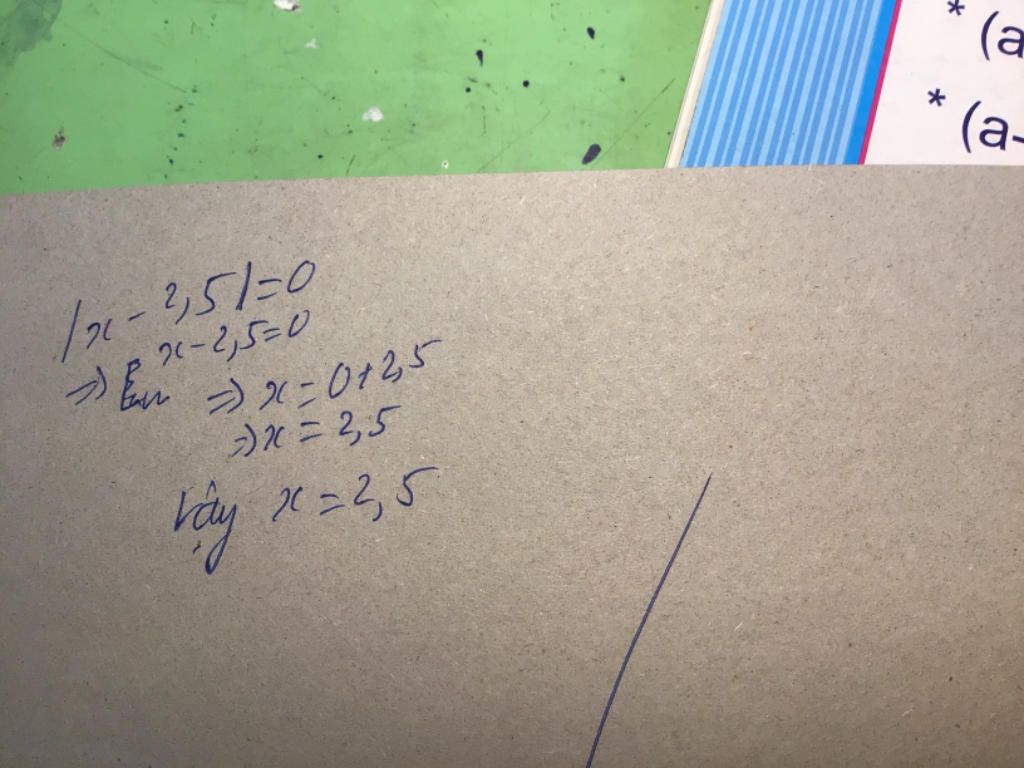 * (a
* (a-
|x - 2,5| = 0
x - 2,5 = 0
=> => x = 0 + 2,5
=> x = 2,5
Vậy x = 2,5